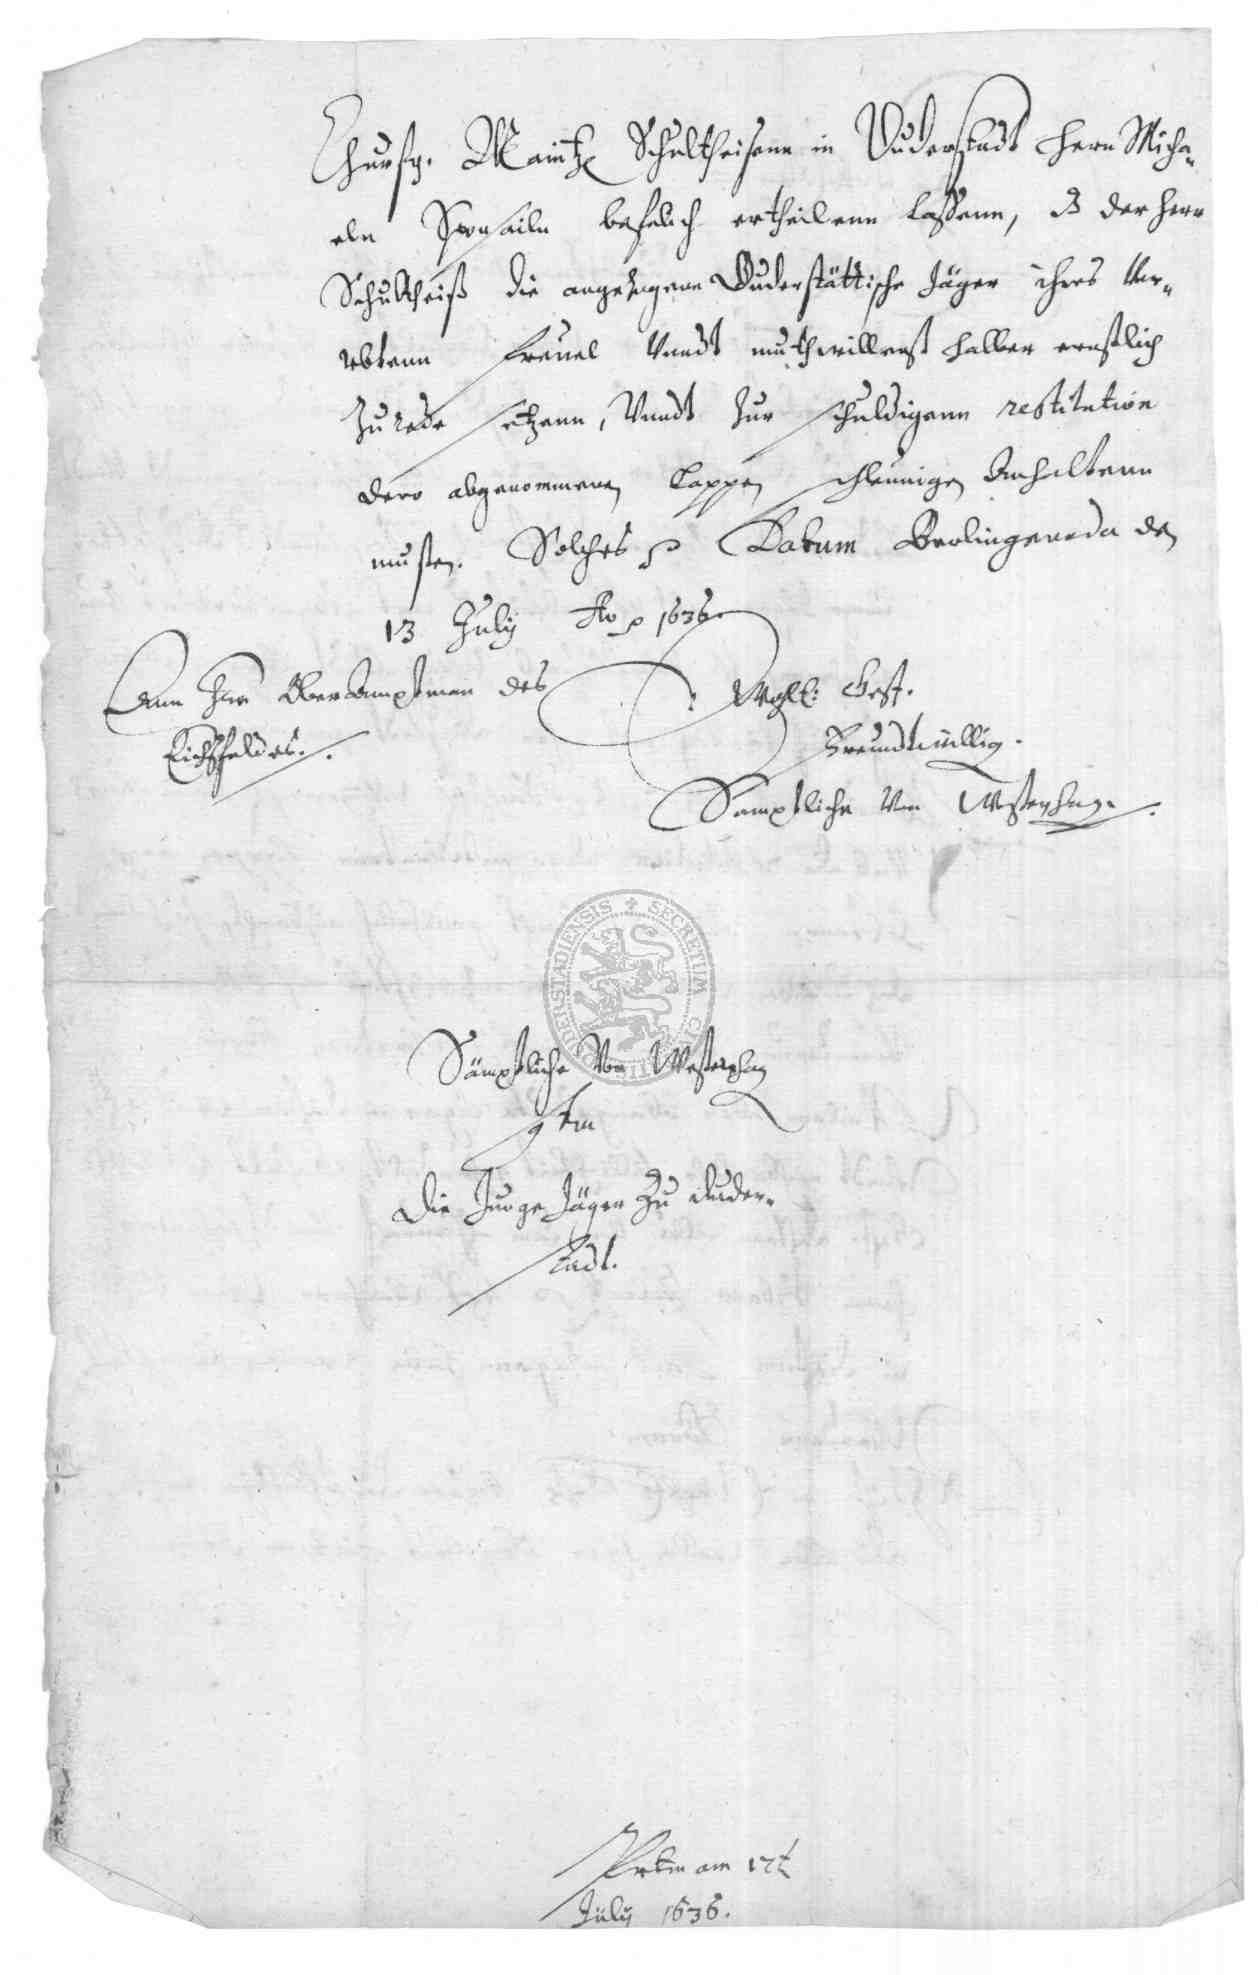 Churfr. Maintz Schultheisenn in Duderstadt Herrn Micha-
eln befelich ertheilenn lassenn, der Herr
Schultheiß die angezogene Duderstättische Jäger ihres Ver-
übtenn freuel Vnndt muthwillenß halber ernstlich
zu rede setzenn, Vnndt zur schuldigenn restitution
dero abgenommenen Lappen schleunigen Anhaltenn
musten. Solches p Datum Berlingeroda den
13 July Ao p 1636
Ann Herrn Oberambtman des
Eichßfeldes.
Wohl: Gest.
Freundtwillig.
Samptliche Von Westernhagen.
SECRETUM CIVITATIS DUDERSTADIENSIS
Sämptliche Von Westernhagen
Die Junge Jäger Zu Duder-
stadt.
am 17t
July 1636.